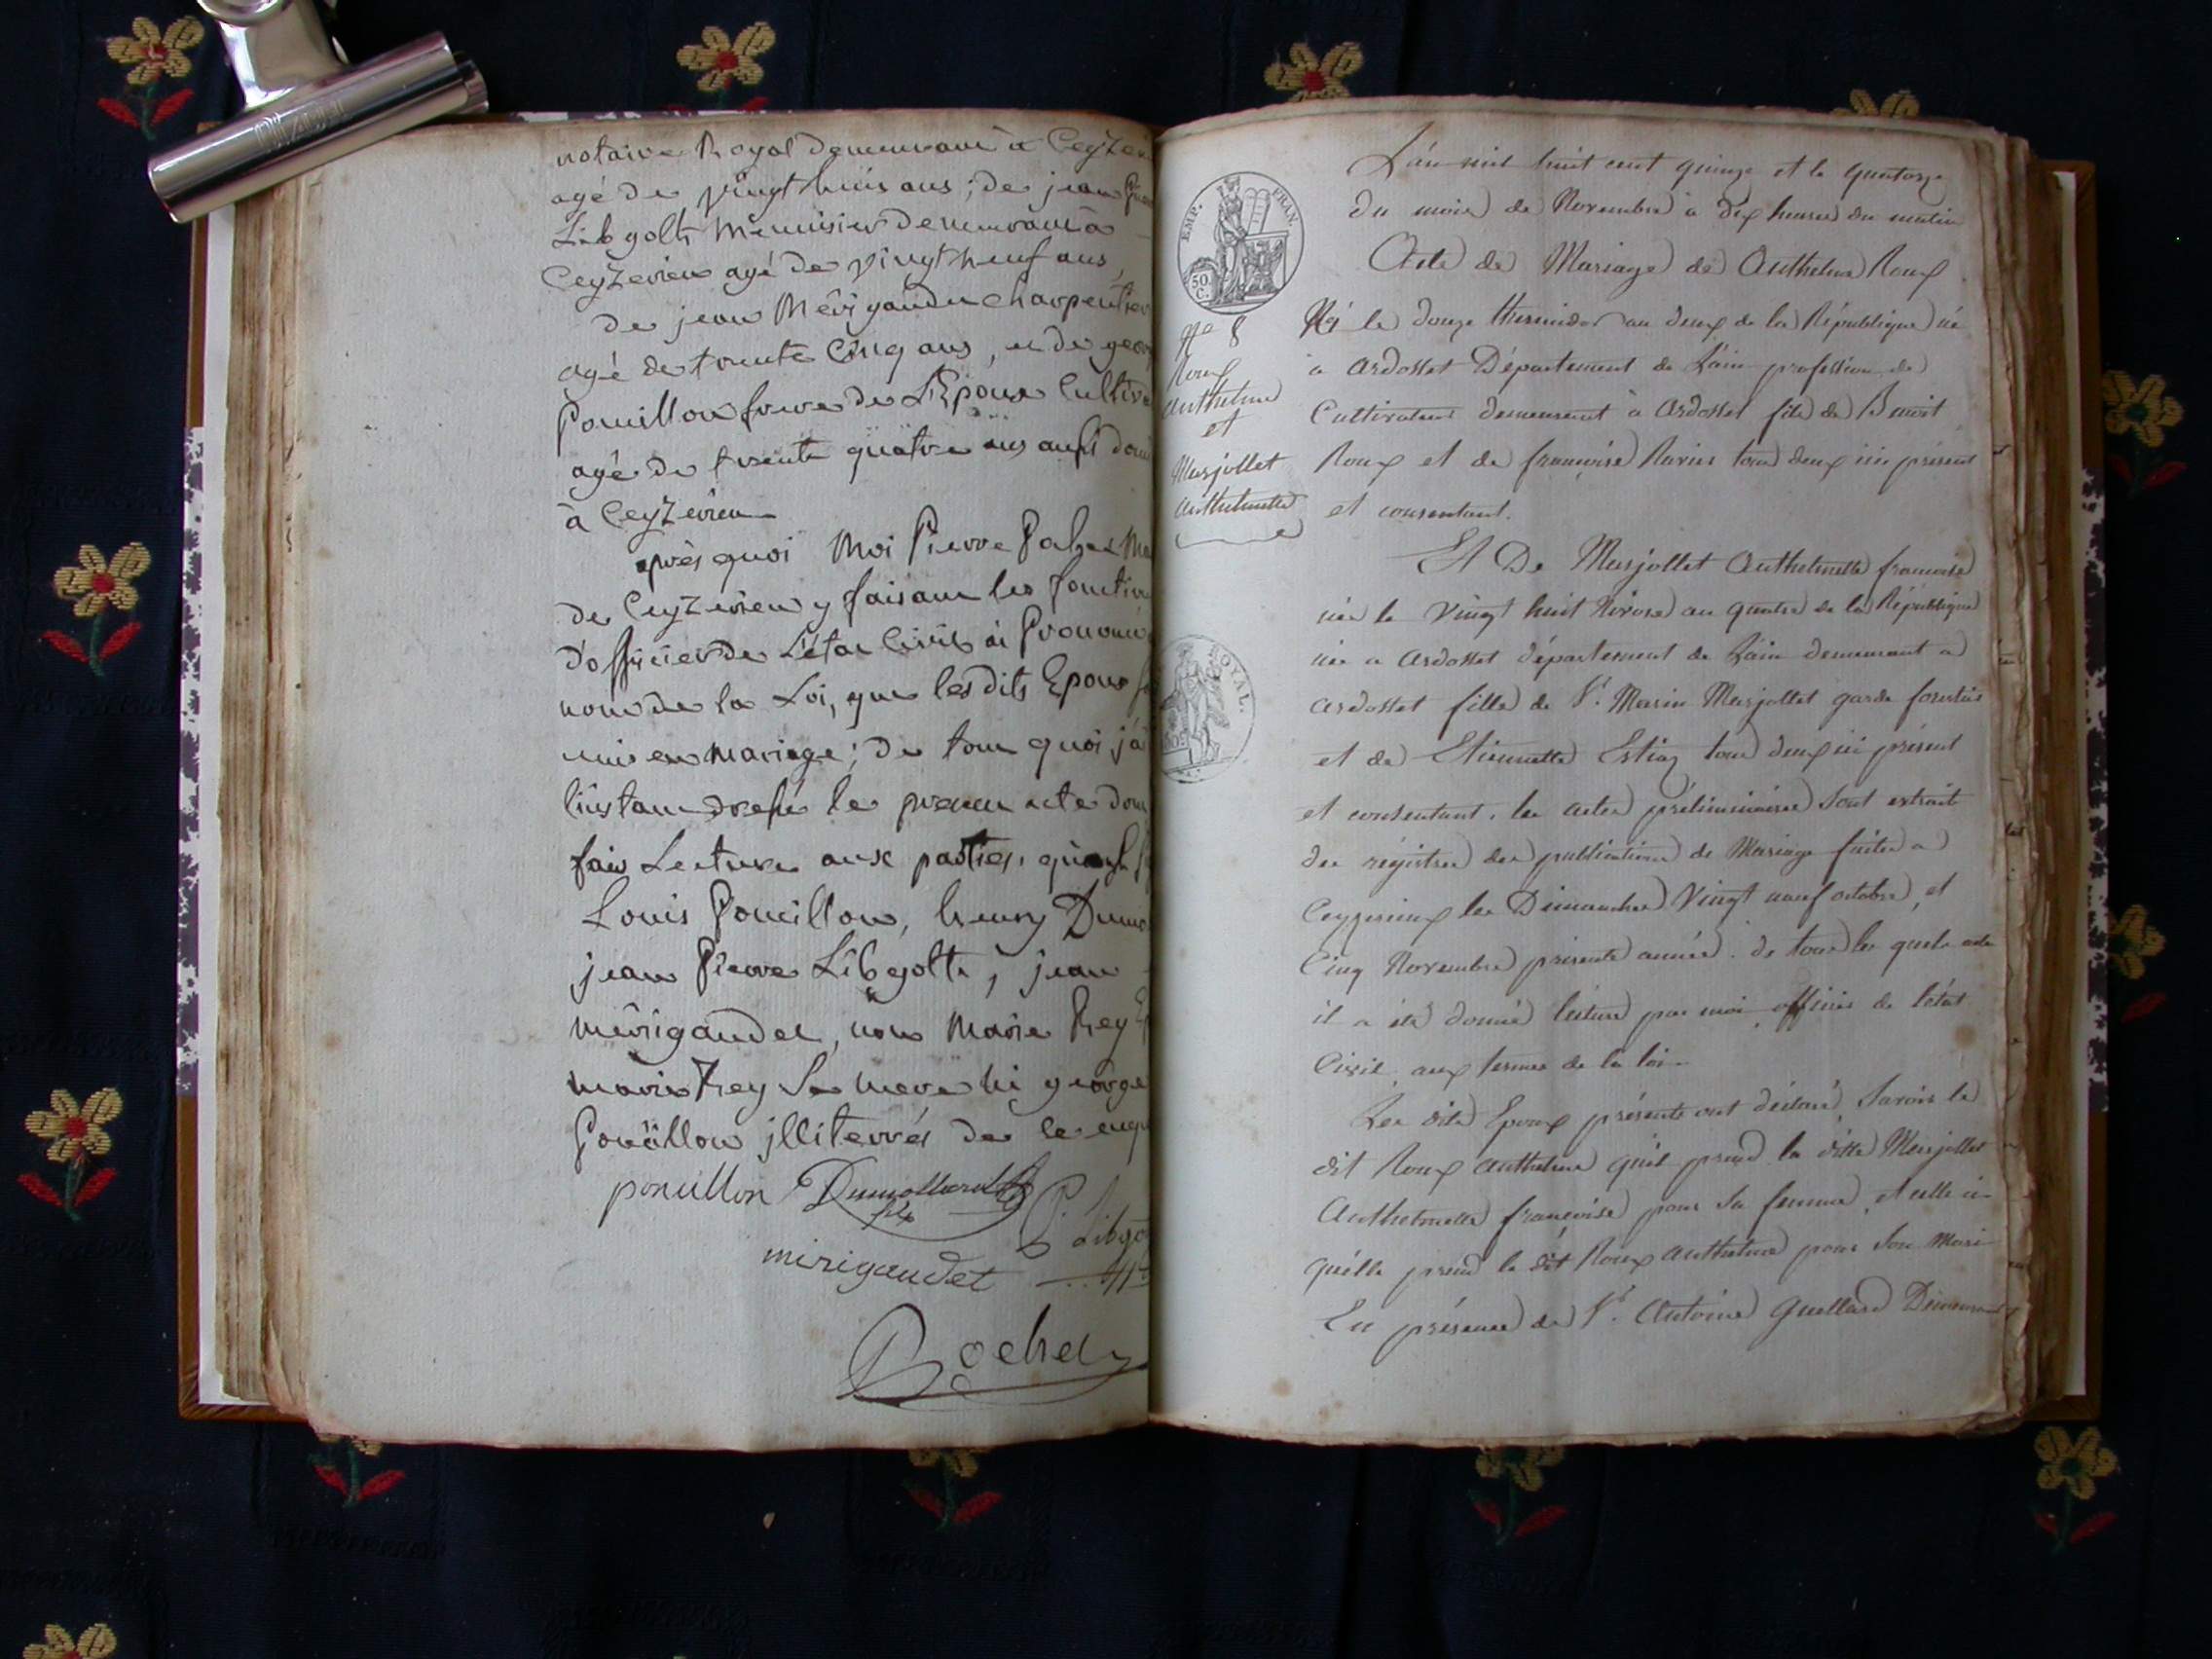 notaire Royal demeurant à Ceyzer
agé de vingt huis ans ; de jean
Libgolts Menuisier demeurant à
Ceyzerieu agé de vingt neuf ans,
de jean Mérigaudu charpentier
agé de trente Cinq ans, et de geor
Pouillou frere de L'Epouse Cultiv
agé de trente quatre ans aussi dom
à Ceyzérieu
après quoi Moi Pierre Ma
de Ceyzerieu y faisant les fonction
d'officier de L'état Civil ai Prononcé
nom de la Loi, que les dits Epoux
unis en mariage ; de tout quoi j'ai
l'instant dressé le présent acte dont
fais Lecture aux parties, qui ont
Louis Pouillou, henry Dumo
jean Pierre Libgolts, jean
mérigaudet, non Marie Rey
marie Rey Sa mere ni george
Pouillou jlliterrés de ce enqu
ponillon Dumollard P. Libgo
fils
mirigaudet
Rochet
EMP. FRAN.
50 C.
ROYAL.
N° 8
Roux
Anthelme
et
Marjollet
Anthelmette
L'an mil huit cent quinze et le quatorze
du mois de Novembre à dix heures du matin
Acte de Mariage de Anthelme Roux
Né le douze thermidor an deux de la République né
à Ardosset Département de L'ain profession de
Cultivateur demeurant à Ardosset fils de Benoit
Roux et de françoise Ravier tous deux ici présent
et consentant.
Et De Marjollet Anthelmette françoise
née le Vingt huit Nivose an quatre de la République
née a Ardosset département de L'ain demeurant a
Ardosset fille de Sr. Marin Marjollet garde forestier
et de Etiennette Estiaz tous deux ici présent
et consentant. les actes préliminaires Sont extrait
des régistres des publications de Mariage faites a
Ceyzerieux les Dimanches Vingt neuf octobre, et
Cinq Novembre présente année. de tous les quels actes
il a été donné lecture par moi officier de l'état
Civil, aux termes de la loi.
Les dits Epoux présents ont déclaré, Savoir le
dit Roux Anthelme qu'il prend la ditte Marjollet
Anthelmette françoise pour Sa femme, et celle ci
qu'elle prend le dit Roux Anthelme pour Son Mari
En présence de Sr. Antoine Guellard Demeurant